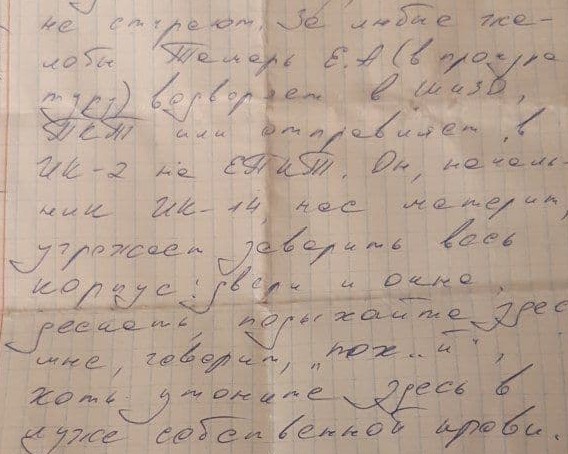 не стирают. За любые жа-
лобы Томарь Е.А (в прокура
туру) водворяет в ШИЗО,
ПКТ или отправляет в
ИК-2 на ЕПКТ. Он, началь-
ник ИК-14, нас материт,
угрожает заварить весь
корпус: двери и окна,
дескать, подыхайте здес
мне, говорит, "пох..й",
хоть утоните здесь в
луже собственной крови.